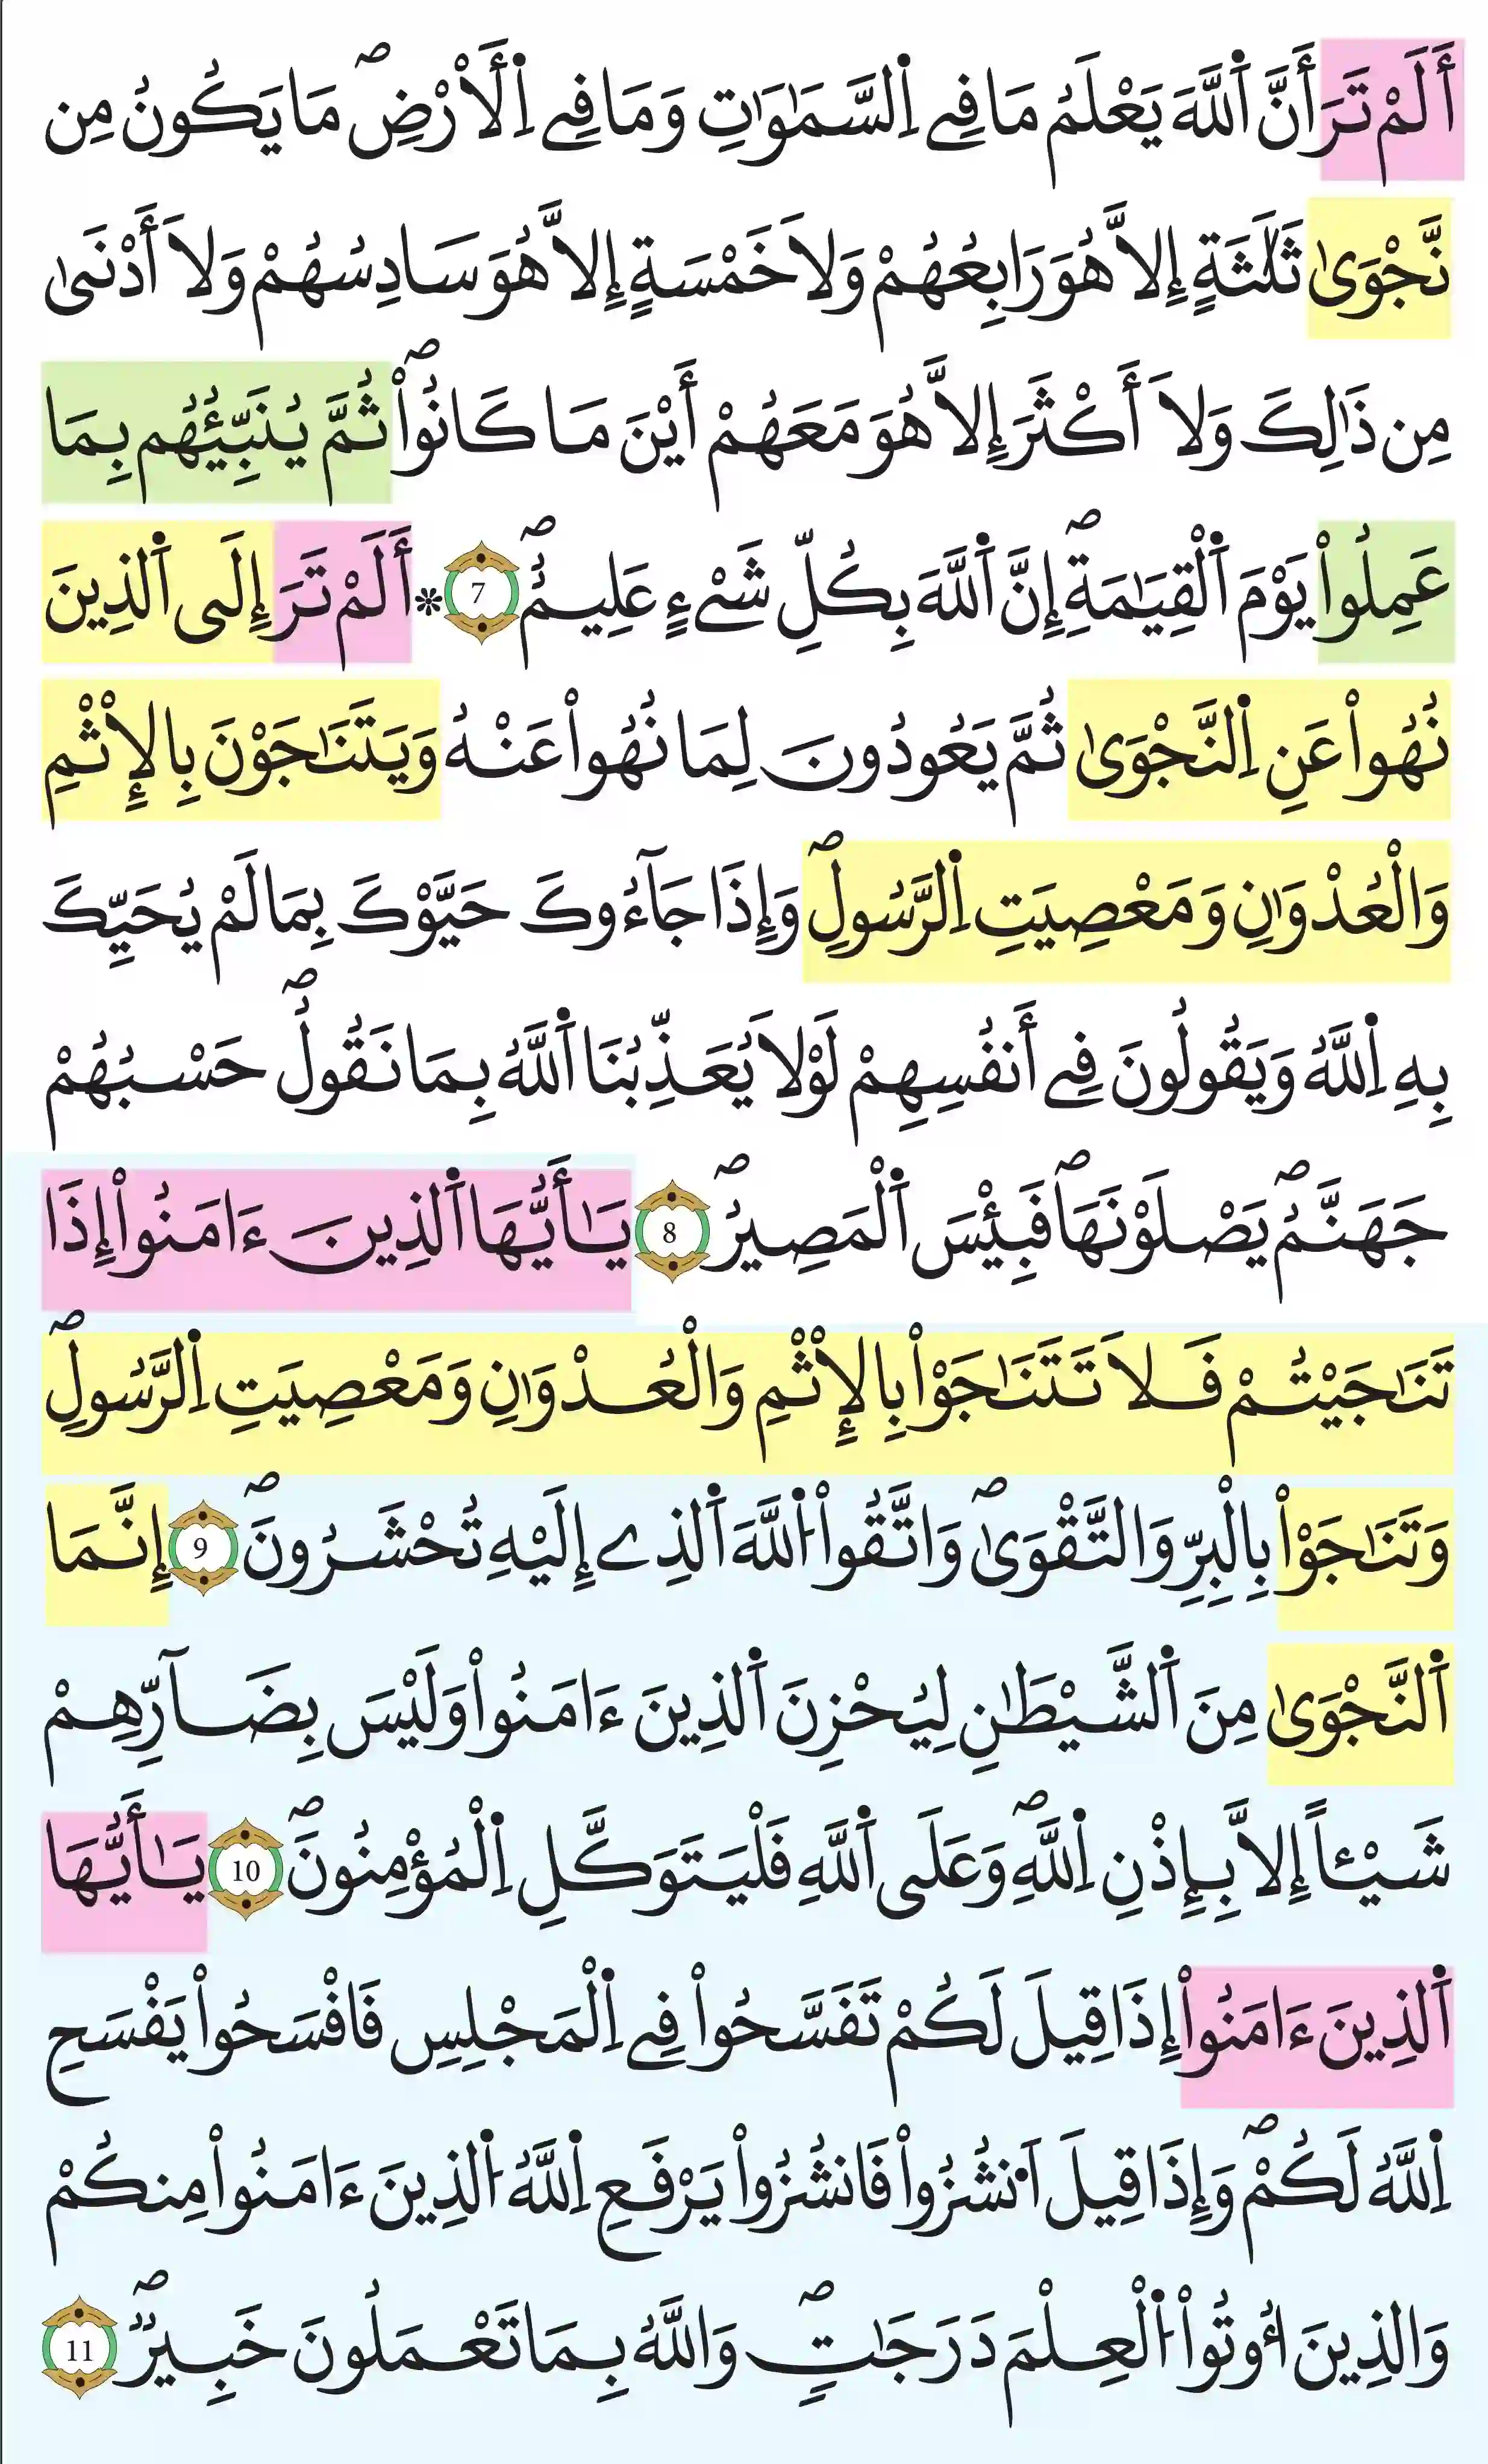 أَلَمْ تَرَ أَنَّ اَ۬للَّهَ يَعْلَمُ مَا فِے اِ۬لسَّمَٰوَٰتِ وَمَا فِے اِ۬لَأرْضِۖ مَا يَكُونُ مِن
نَّجْوَىٰ ثَلَٰثَةٍ إِلَّا هُوَ رَابِعُهُمْ وَلَا خَمْسَةٍ إِلَّا هُوَ سَادِسُهُمْ وَلَا أَدْنَىٰ
مِن ذَٰلِكَ وَلَا أَكْثَرَ إِلَّا هُوَ مَعَهُمْ أَيْنَ مَا كَانُواْۖ ثُمَّ يُنَبِّئُهُم بِمَا
عَمِلُواْ يَوْمَ اَ۬لْقِيَٰمَةِۖ إِنَّ اَ۬للَّهَ بِكُلِّ شَےْءٍ عَلِيمٌۖ 7 * أَلَمْ تَرَ إِلَى اَ۬لذِينَ
نُهُواْ عَنِ اِ۬لنَّجْوَىٰ ثُمَّ يَعُودُونَ لِمَا نُهُواْ عَنْهُ وَيَتَنَٰجَوْنَ بِالِاثْمِ
وَالْعُدْوَٰنِ وَمَعْصِيَتِ اِ۬لرَّسُولِۖ وَإِذَا جَآءُوكَ حَيَّوْكَ بِمَا لَمْ يُحَيِّكَ
بِهِ اِ۬للَّهُ وَيَقُولُونَ فِے أَنفُسِهِمْ لَوْلَا يُعَذِّبُنَا اَ۬للَّهُ بِمَا نَقُولُۖ حَسْبُهُمْ
جَهَنَّمُۖ يَصْلَوْنَهَاۖ فَبِئْسَ اَ۬لْمَصِيرُۖ 8 يَٰأَيُّهَا اَ۬لذِينَ ءَامَنُواْ إِذَا
تَنَٰجَيْتُمْ فَلَا تَتَنَٰجَوْاْ بِالِاثْمِ وَالْعُدْوَٰنِ وَمَعْصِيَتِ اِ۬لرَّسُولِۖ
وَتَنَٰجَوْاْ بِالْبِرِّ وَالتَّقْوَىٰۖ وَاتَّقُواْ اُ۬للَّهَ اَ۬لذِے إِلَيْهِ تُحْشَرُونَۖ 9 إِنَّمَا
اَ۬لنَّجْوَىٰ مِنَ اَ۬لشَّيْطَٰنِ لِيُحْزِنَ اَ۬لذِينَ ءَامَنُواْ وَلَيْسَ بِضَآرِّهِمْ
شَيْـٔاً إِلَّا بِإِذْنِ اِ۬للَّهِۖ وَعَلَى اَ۬للَّهِ فَلْيَتَوَكَّلِ اِ۬لْمُؤْمِنُونَۖ 10 يَٰأَيُّهَا
اَ۬لذِينَ ءَامَنُواْ إِذَا قِيلَ لَكُمْ تَفَسَّحُواْ فِے اِ۬لْمَجْلِسِ فَافْسَحُواْ يَفْسَحِ
اِ۬للَّهُ لَكُمْۖ وَإِذَا قِيلَ اَ۟نشُزُواْ فَانشُزُواْ يَرْفَعِ اِ۬للَّهُ اُ۬لذِينَ ءَامَنُواْ مِنكُمْ
وَالذِينَ أُوتُواْ اُ۬لْعِلْمَ دَرَجَٰتٍۖ وَاللَّهُ بِمَا تَعْمَلُونَ خَبِيرٌۖ 11